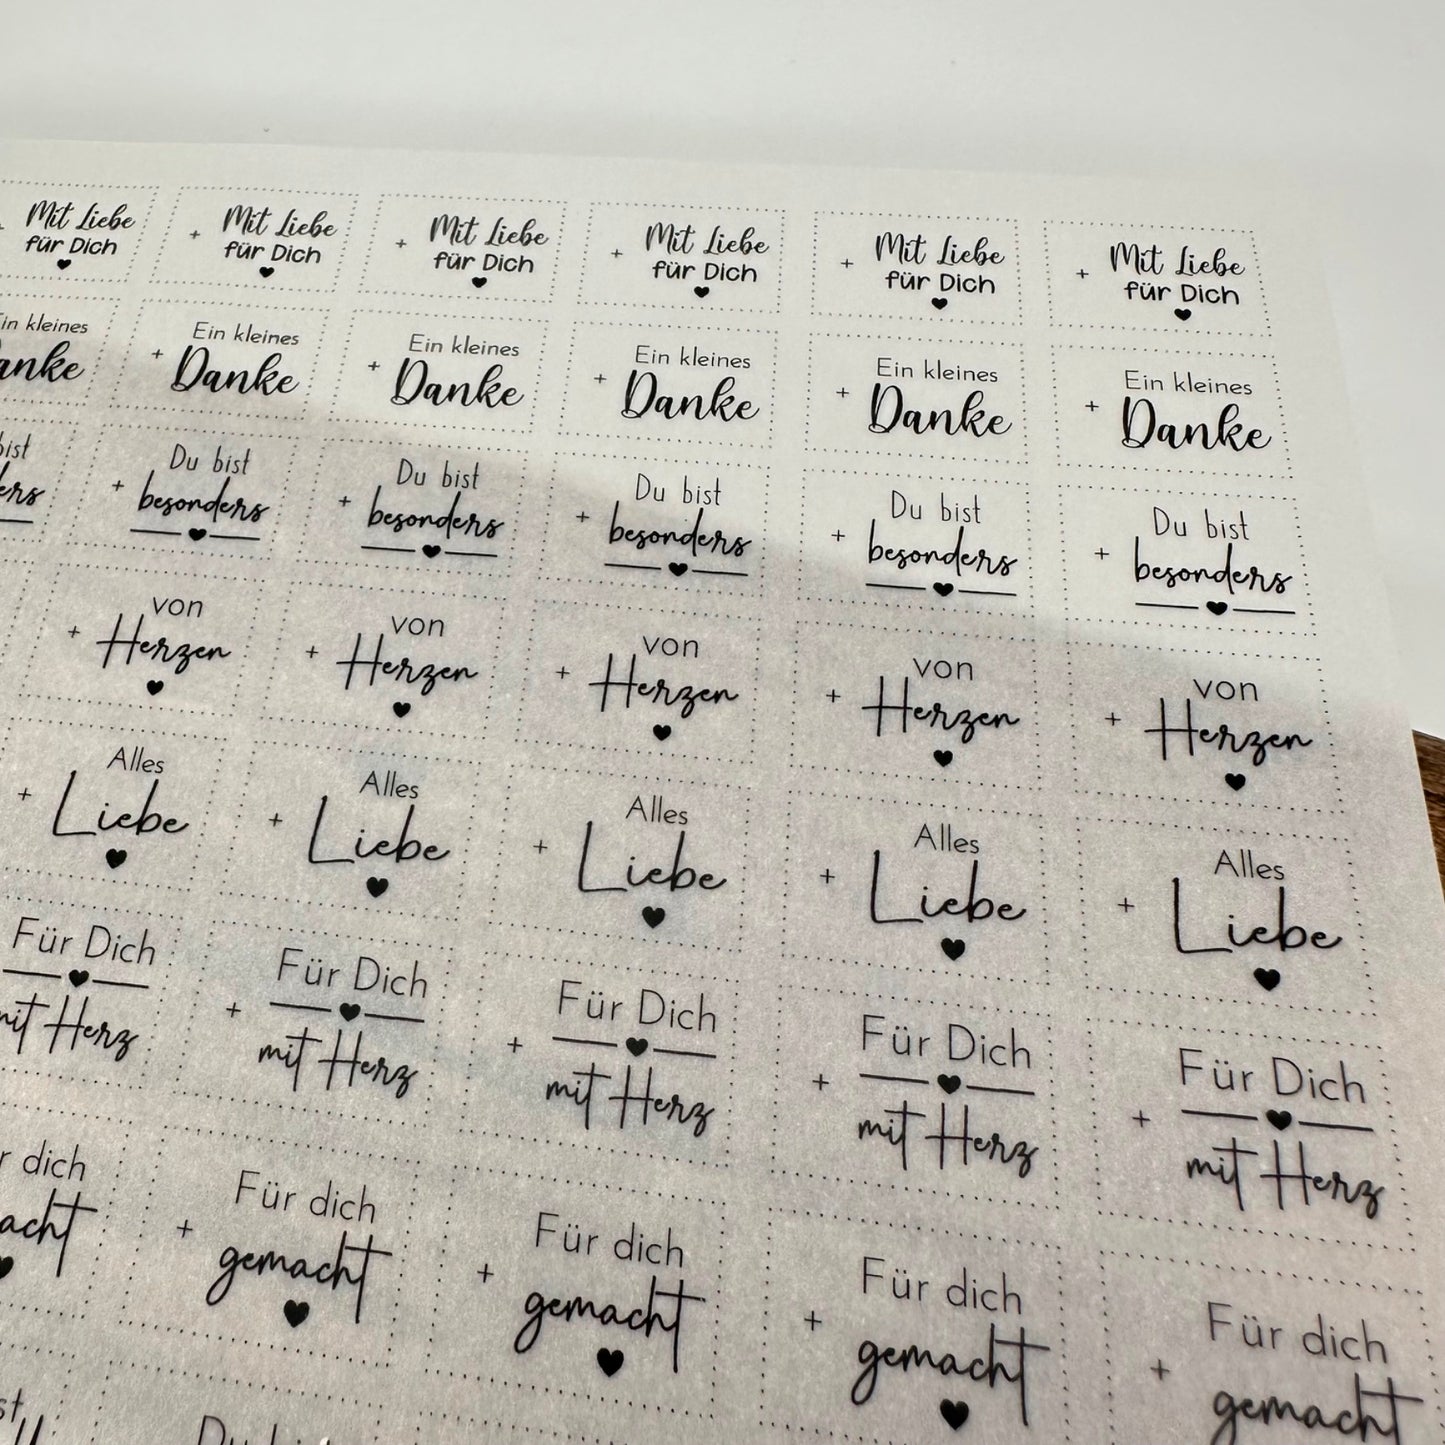 + Mit Liebe + Mit Liebe + Mit Liebe + Mit Liebe + Mit Liebe + Mit Liebe
für Dich für Dich für Dich für Dich für Dich für Dich
Ein kleines Ein kleines Ein kleines Ein kleines Ein kleines Ein kleines
Danke + Danke + Danke + Danke + Danke + Danke
bist Du bist Du bist Du bist Du bist Du bist
+ besonders + besonders + besonders + besonders + besonders
von von von von von
+ Herzen + Herzen + Herzen + Herzen + Herzen
Alles Alles Alles Alles Alles
+ Liebe + Liebe + Liebe + Liebe + Liebe
Für Dich + Für Dich + Für Dich + Für Dich + Für Dich
mit Herz mit Herz mit Herz mit Herz mit Herz
dich Für dich Für dich Für dich Für dich
+ gemacht + gemacht + gemacht + gemacht
Du